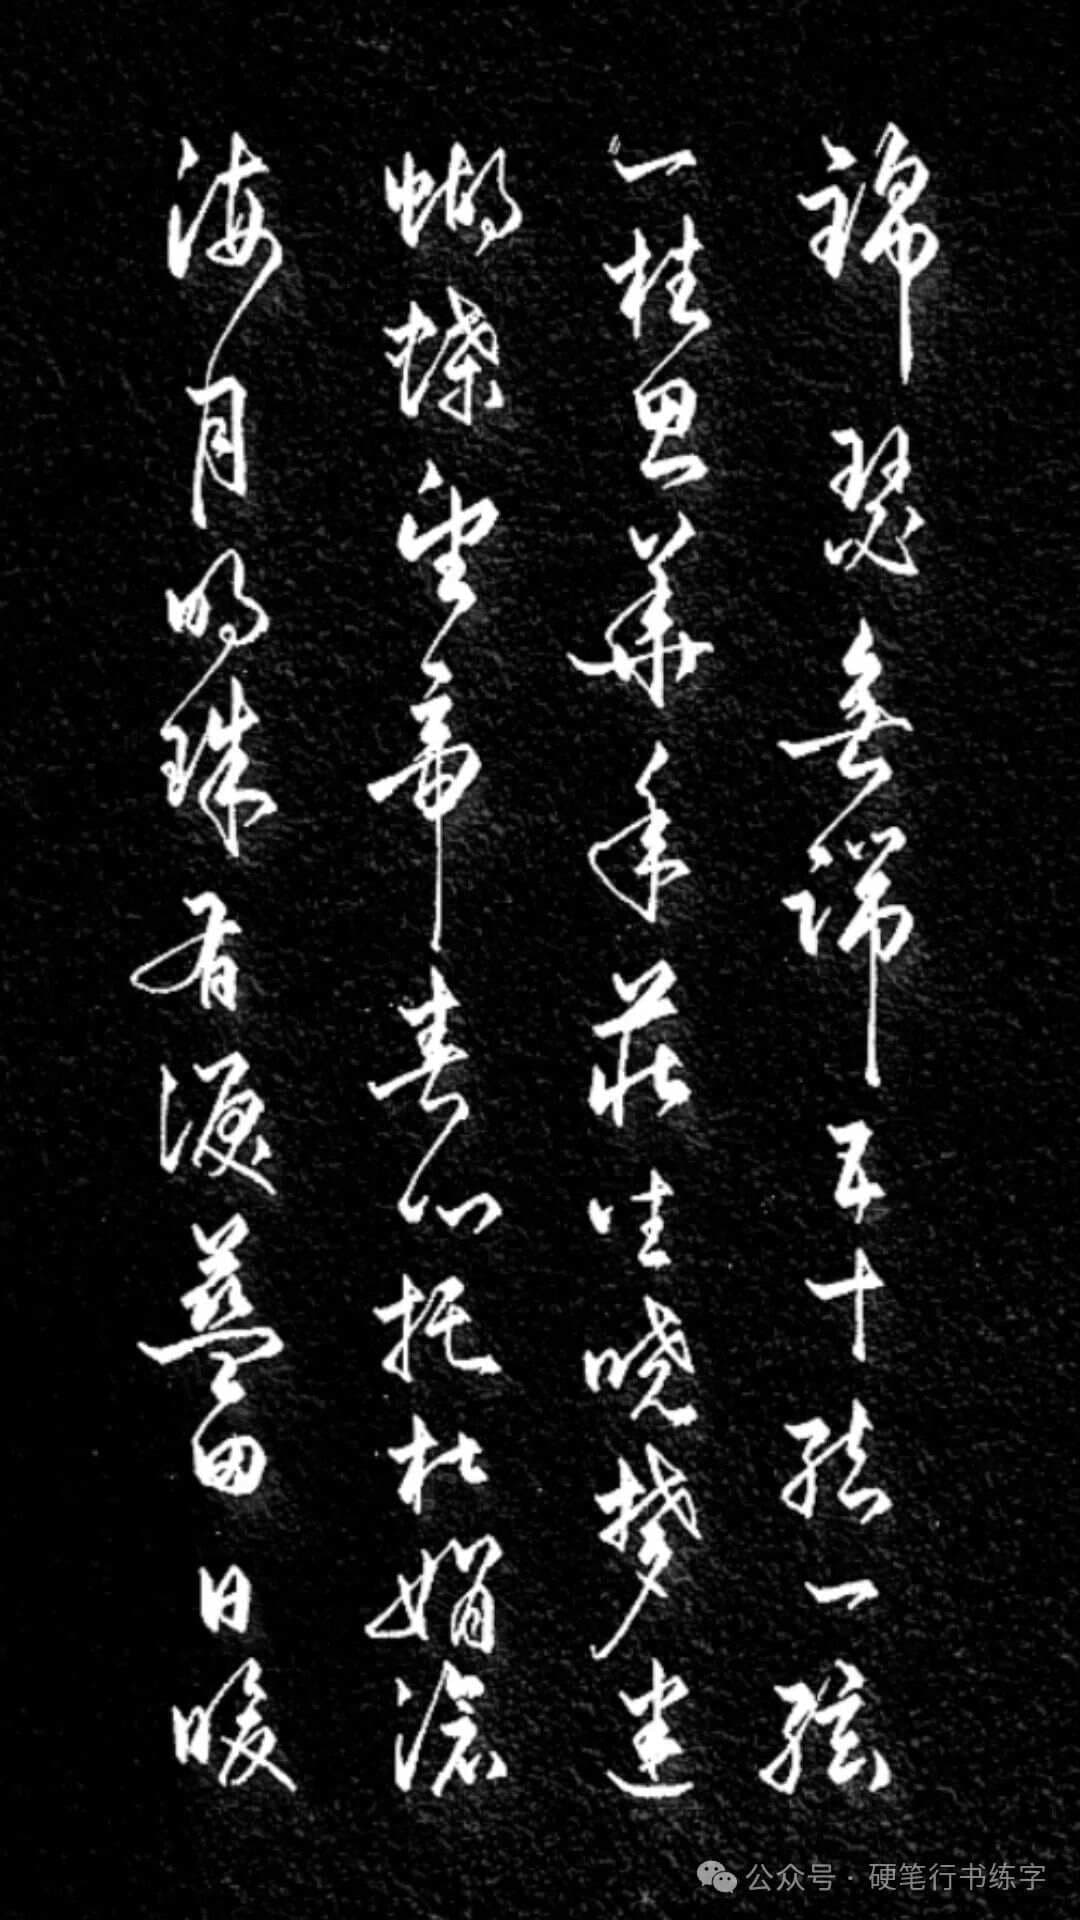 錦瑟無端五十弦一弦
一柱思華年莊生晓梦迷
蝴蝶望帝春心托杜娟滄
海月明珠有淚藍田日暖
公众号·硬笔行书练字